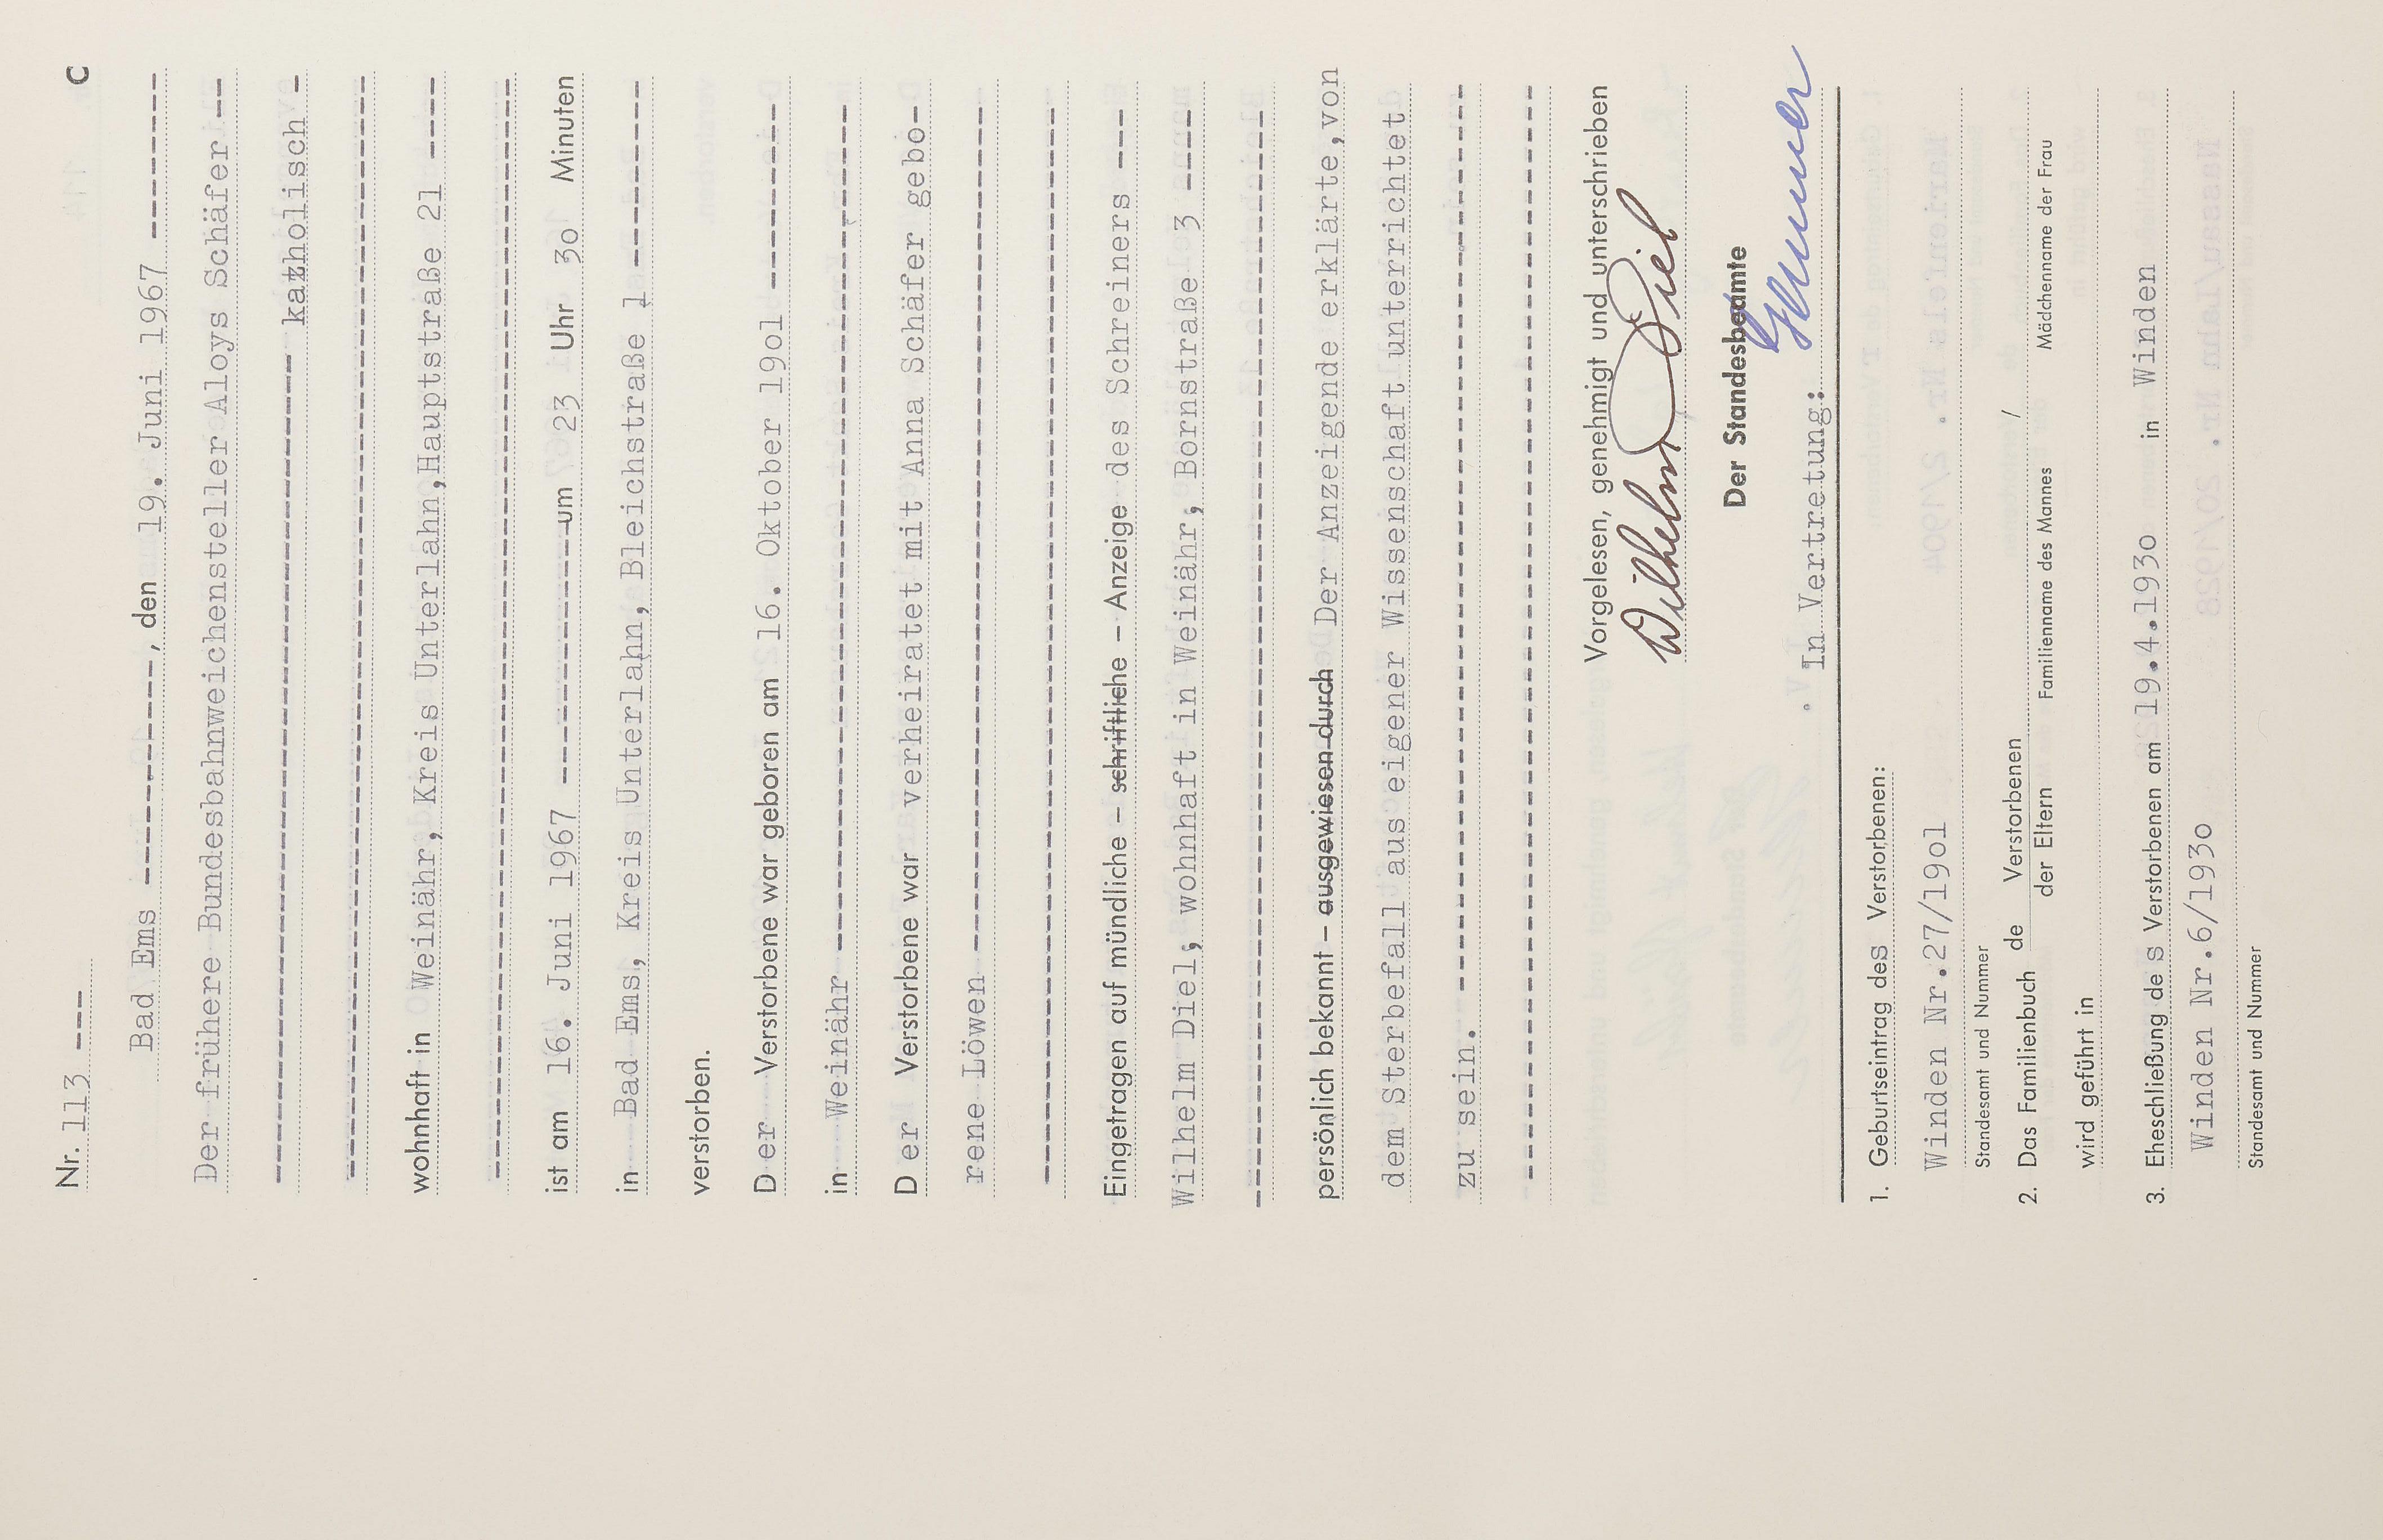 Nr. 113 --- C
Bad Ems ----------, den 19. Juni 1967 ---------
Der frühere Bundesbahnweichensteller Aloys Schäfer --
---------------------------------------- katholisch -
------------------------------------------------------
wohnhaft in Weinähr, Kreis Unterlahn,Hauptstraße 21 ----
------------------------------------------------------
ist am 16. Juni 1967 -------------um 23 Uhr 3o Minuten
in Bad Ems, Kreis Unterlahn, Bleichstraße 1 ----------
verstorben.
D er Verstorbene war geboren am 16. Oktober 19o1 ----------
in Weinähr ------------------------------------------
D er Verstorbene war verheiratet mit Anna Schäfer gebo-
rene Löwen ------------------------------------------
------------------------------------------------------
Eingetragen auf mündliche – schriftliche – Anzeige des Schreiners ---
Wilhelm Diel; wohnhaft in Weinähr; Bornstraße 3 ----
------------------------------------------------------
persönlich bekannt – ausgewiesen durch Der Anzeigende erklärte,von
dem Sterbefall aus eigener Wissenschaft unterrichtet
zu sein. --------------------------------------------
------------------------------------------------------
Vorgelesen, genehmigt und unterschrieben
Wilhelm Diel
Der Standesbeamte
In Vertretung:
1. Geburtseintrag des Verstorbenen:
Winden Nr.27/19o1
Standesamt und Nummer
2. Das Familienbuch de Verstorbenen
der Eltern
/
Familienname des Mannes Mädchenname der Frau
wird geführt in
3. Eheschließung de s Verstorbenen am 19.4.193o in Winden
Winden Nr.6/193o
Standesamt und Nummer